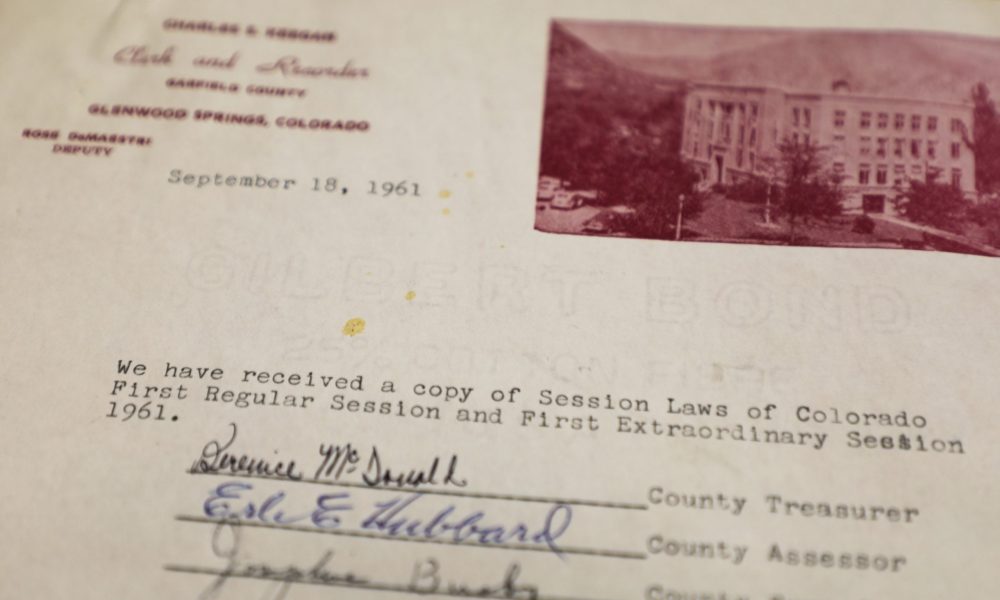 CHARLES S. KEEGAN
Clerk and Recorder
GARFIELD COUNTY
GLENWOOD SPRINGS, COLORADO
ROSE DeMAESTRI
DEPUTY
September 18, 1961
GILBERT BOND
We have received a copy of Session Laws of Colorado
First Regular Session and First Extraordinary Session
1961.
Berenice McDonald
County Treasurer
E. Hubbard
County Assessor
County